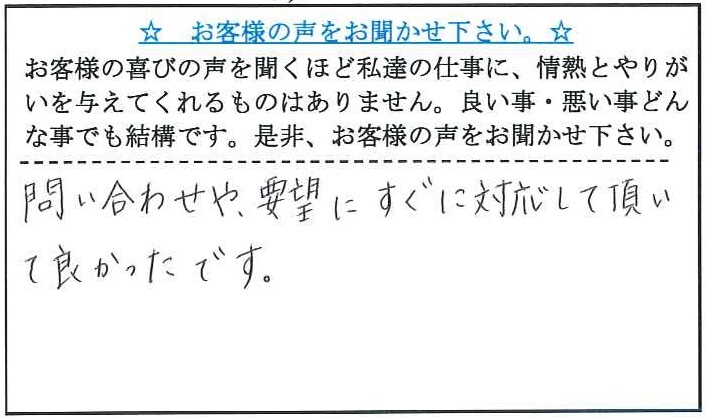 ☆　お客様の声をお聞かせ下さい。☆
お客様の喜びの声を聞くほど私達の仕事に、情熱とやりが
いを与えてくれるものはありません。良い事・悪い事どん
な事でも結構です。是非、お客様の声をお聞かせ下さい。
問い合わせや、要望にすぐに対応して頂い
て良かったです。